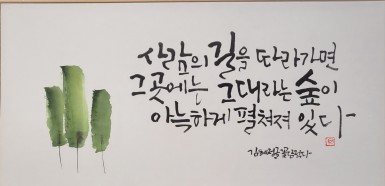 사람의 길을 따라가면
그곳에는 그대라는 숲이
아늑하게 펼쳐져 있다